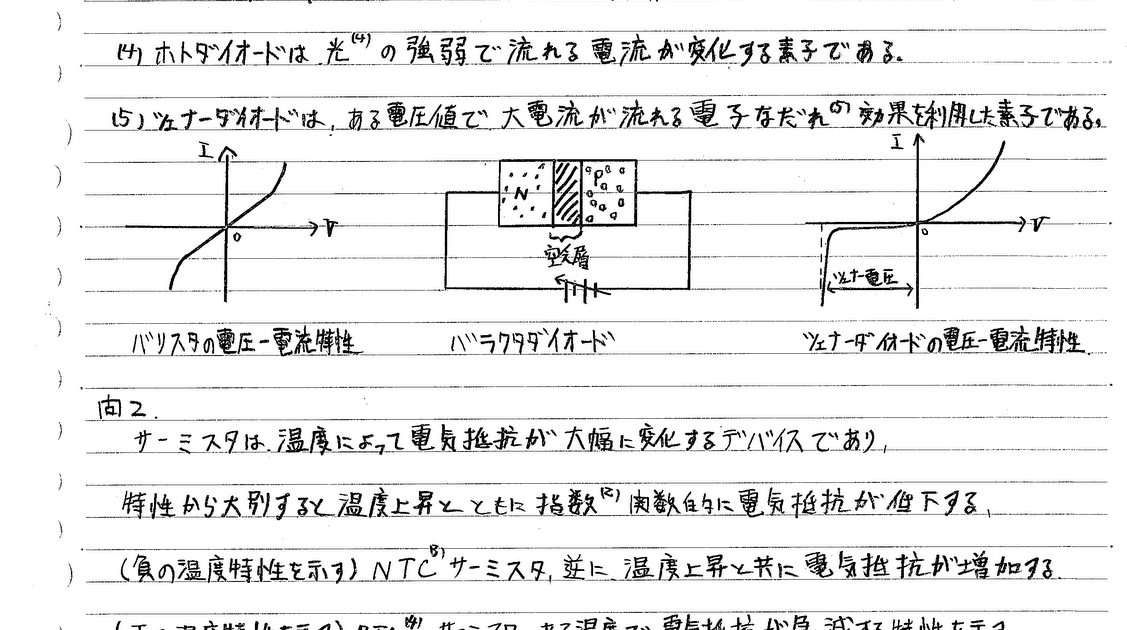 (4) ホトダイオードは 光(4) の 強弱で 流れる 電流が変化する素子である。
(5) ツェナーダイオードは、ある電圧値で 大電流が流れる 電子なだれ(5) 効果を利用した素子である。
I
V
0
N
P
空乏層
I
V
0
ツェナー電圧
バリスタの電圧-電流特性
バラクタダイオード
ツェナーダイオードの電圧-電流特性
問2.
サーミスタは、温度によって電気抵抗が 大幅に変化するデバイスであり、
特性から大別すると 温度上昇と ともに 指数(2) 関数的に電気抵抗が低下する、
(負の温度特性を示す) NTC(3) サーミスタ, 逆に 温度上昇と共に 電気抵抗が増加する